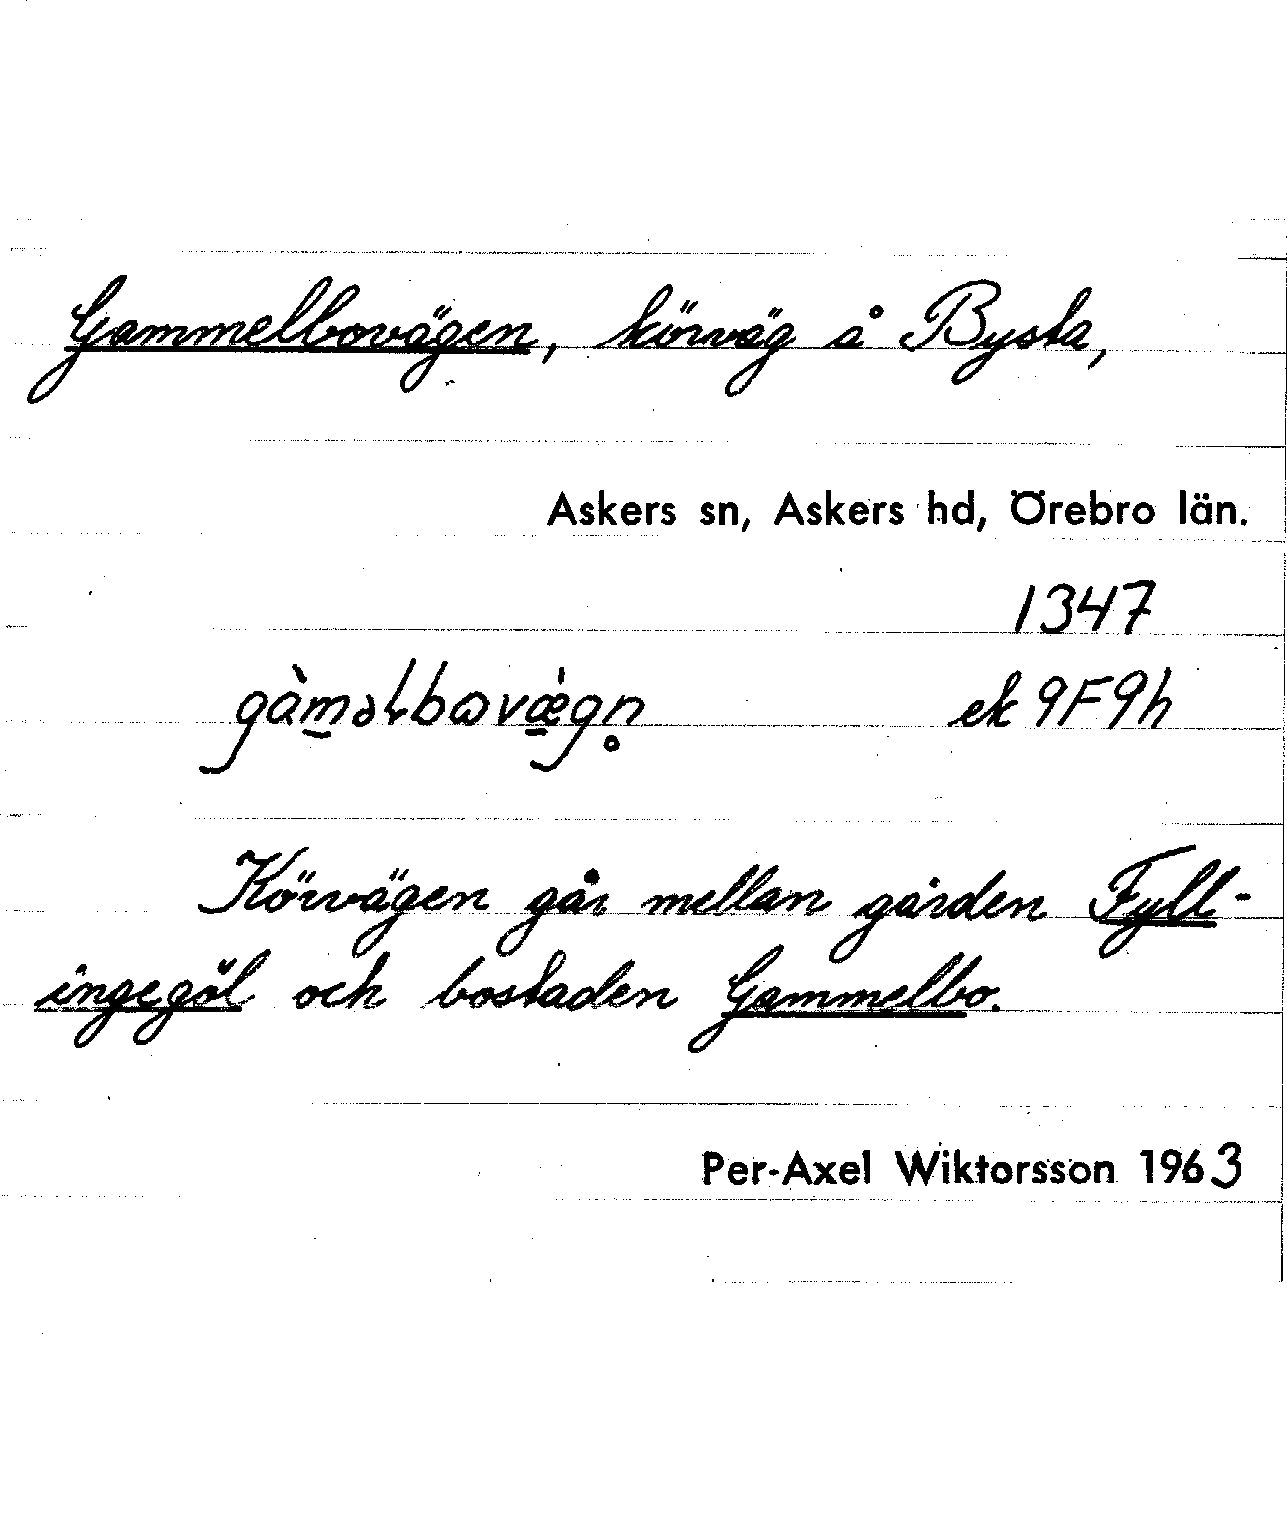 Gammelbovägen, körväg å Bysta,
Askers sn, Askers hd, Örebro län.
1347
gàməɫbωvæ̀gn̥ ek 9F9h
Körvägen går mellan gården Fyll-
ingegöl och bostaden Gammelbo.
Per-Axel Wiktorsson 1963